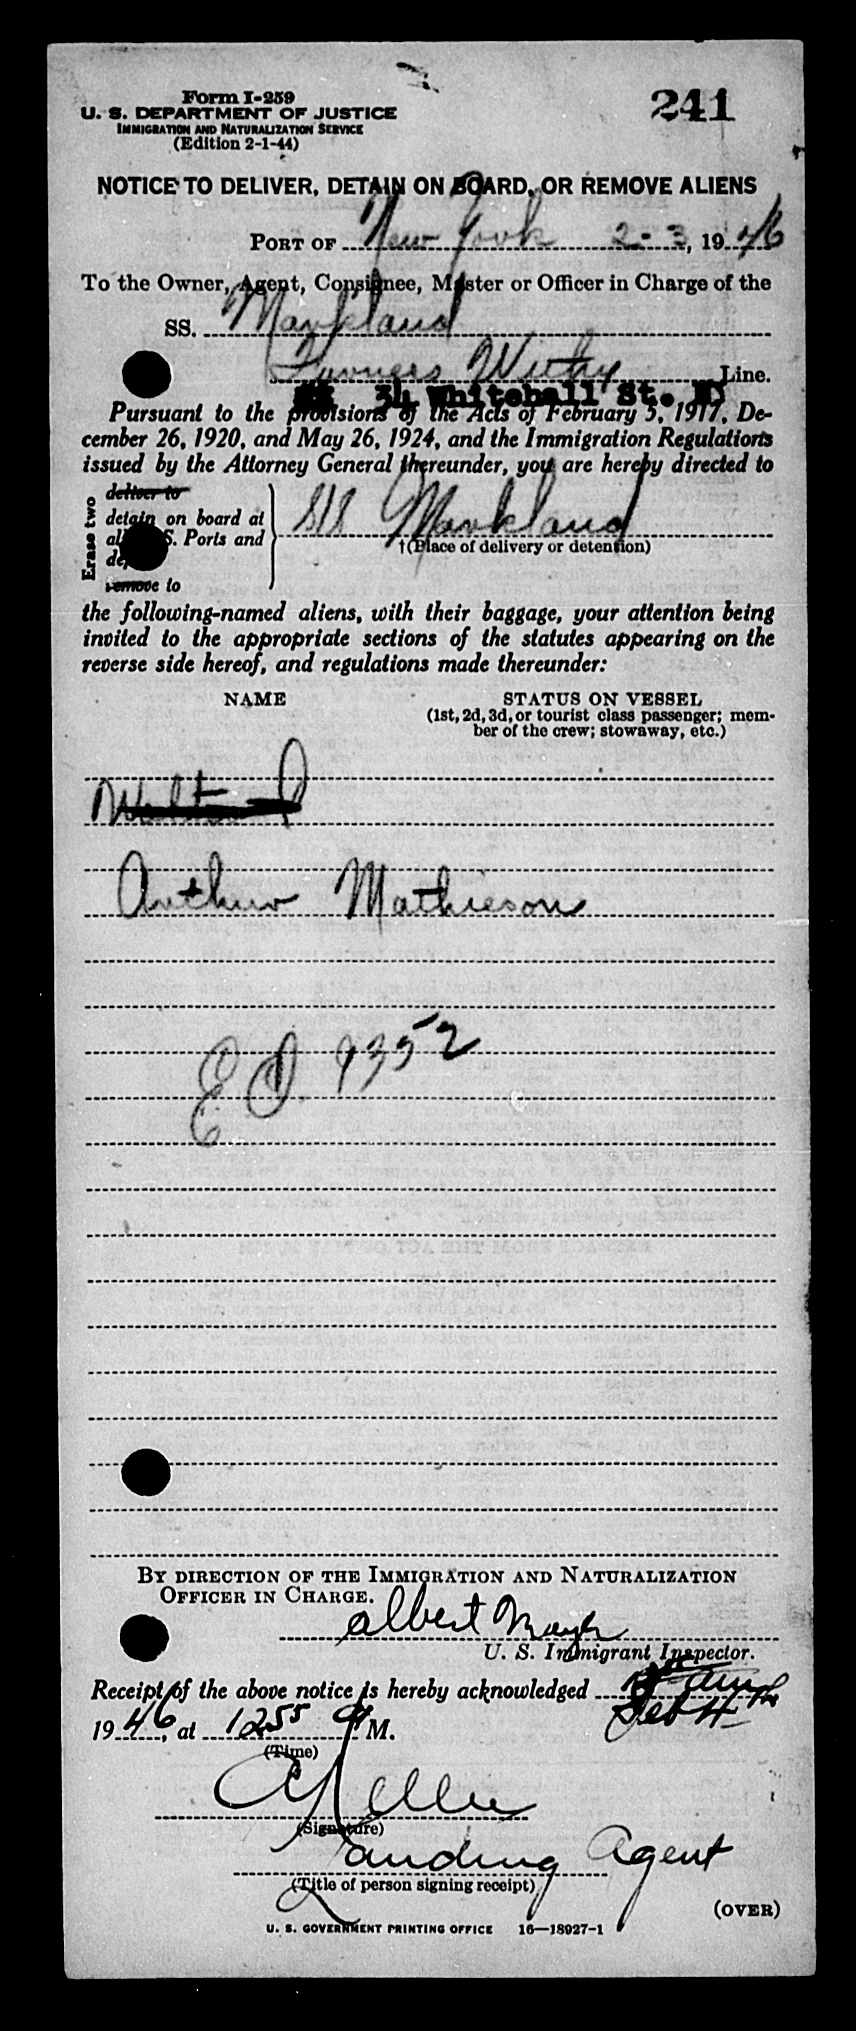 Form I-259
U. S. DEPARTMENT OF JUSTICE
IMMIGRATION AND NATURALIZATION SERVICE
(Edition 2-1-44)
241
NOTICE TO DELIVER, DETAIN ON BOARD, OR REMOVE ALIENS
PORT OF New York 2-3, 1946
To the Owner, Agent, Consignee, Master or Officer in Charge of the
SS. Markland
Furness Withy Line.
34 Whitehall St.
Pursuant to the provisions of the Acts of February 5, 1917, De-
cember 26, 1920, and May 26, 1924, and the Immigration Regulations
issued by the Attorney General thereunder, you are hereby directed to
Erase two
deliver to
detain on board at
all U. S. Ports and
remove to
S/S Markland
†(Place of delivery or detention)
the following-named aliens, with their baggage, your attention being
invited to the appropriate sections of the statutes appearing on the
reverse side hereof, and regulations made thereunder:
NAME STATUS ON VESSEL
(1st, 2d, 3d, or tourist class passenger; mem-
ber of the crew; stowaway, etc.)
Arthur Mathieson
9352
BY DIRECTION OF THE IMMIGRATION AND NATURALIZATION
OFFICER IN CHARGE.
Albert Mayer
U. S. Immigrant Inspector.
Receipt of the above notice is hereby acknowledged
Feb 4th
1946, at 1255 M.
(Time)
(Signature)
Landing Agent
(Title of person signing receipt)
(OVER)
U. S. GOVERNMENT PRINTING OFFICE 16—18927-1